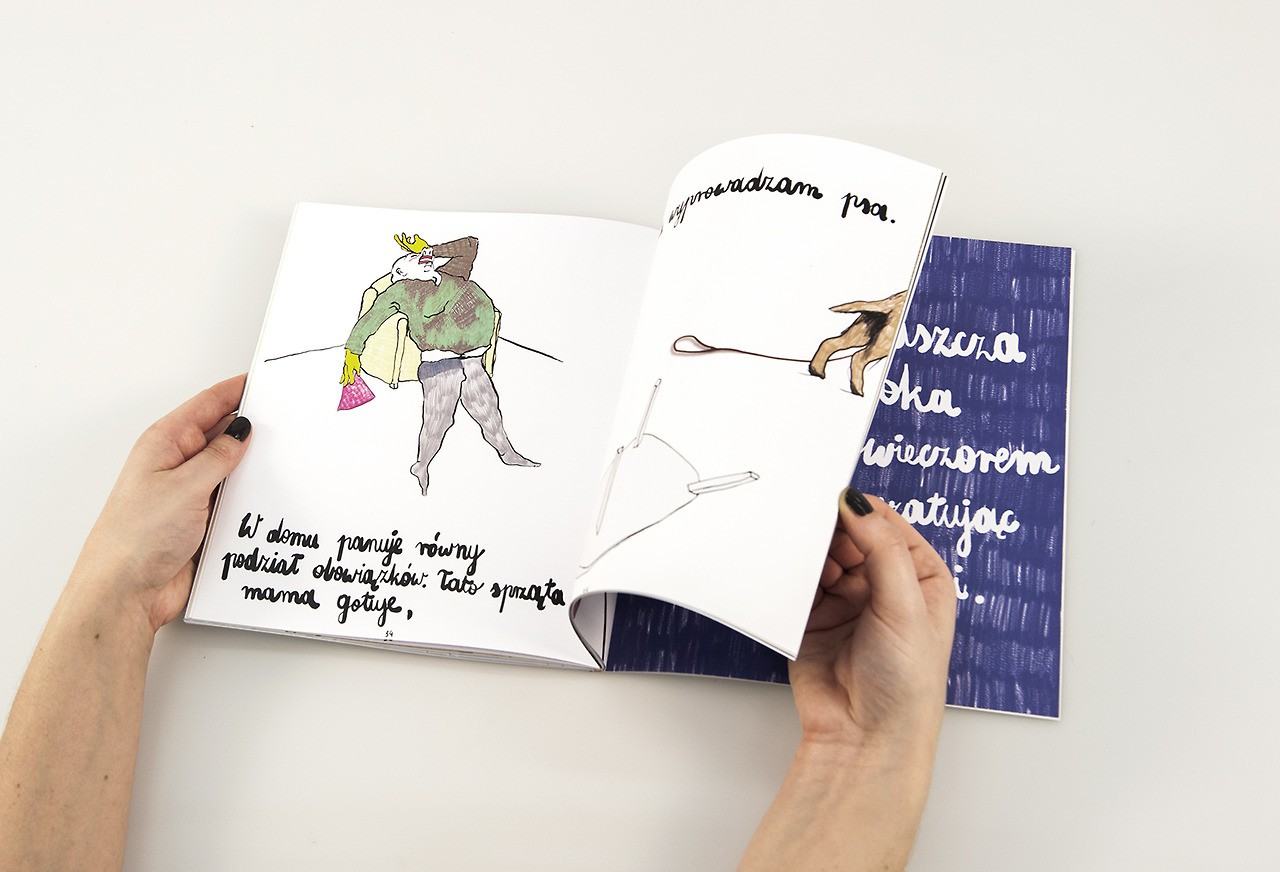 W domu panuje równy
podział obowiązków. Tato sprząta
mama gotuje,
34
wyprowadzam psa.
wieczorem